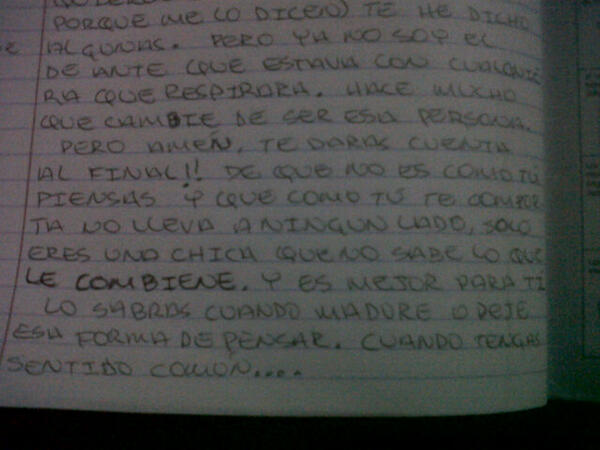 PORQUE ME LO DICEN) TE HE DICHO
ALGUNAS. PERO YA NO SOY EL
DE ANTE QUE ESTAVA CON CUALQUIE
RA QUE RESPIRARA. HACE MUCHO
QUE CAMBIE DE SER ESA PERSONA.
PERO AMEN. TE DARAS CUENTA
AL FINAL!! DE QUE NO ES COMO TU
PIENSAS Y QUE COMO TU TE COMPOR
TA NO LLEVA A NINGUN LADO, SOLO
ERES UNA CHICA QUE NO SABE LO QUE
LE COMBIENE. Y ES MEJOR PARA TI
LO SABRAS CUANDO MADURE O DEJE
ESA FORMA DE PENSAR. CUANDO TENGAS
SENTIDO COMON....